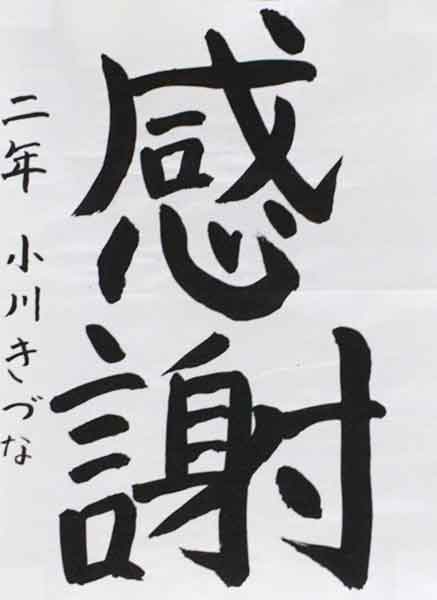 感謝
二年 小川きづな